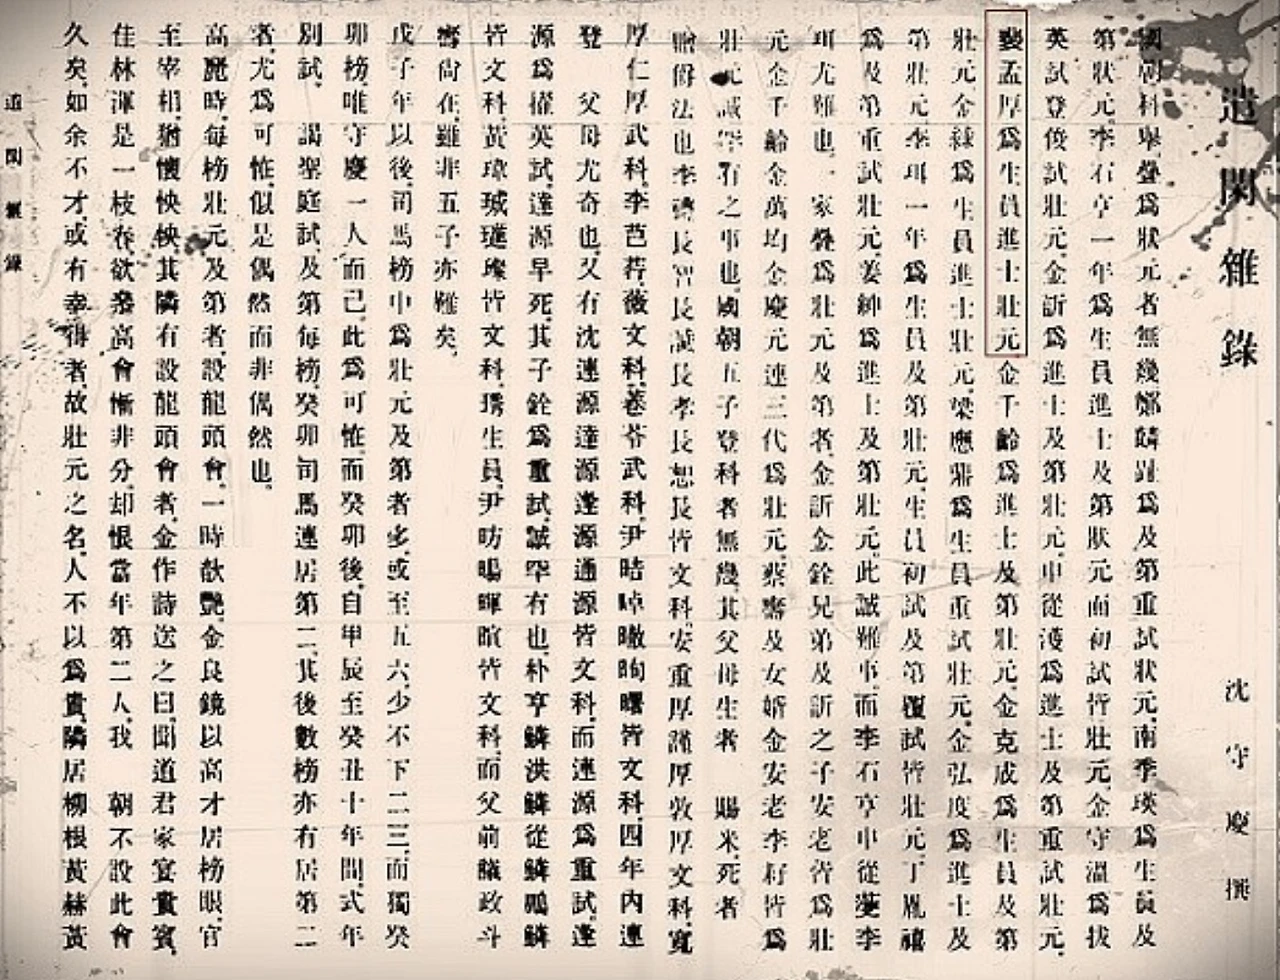 遣閑雜錄
沈守慶撰
國朝科擧聲爲狀元者無幾鄭麟趾爲及第重試狀元南季瑛爲生員及
第狀元李石亨一年爲生員進士及第狀元而初試皆壯元金守溫爲拔
英試登俊試壯元金訢爲進士及第壯元申從濩爲進士及第重試壯元
裵孟厚爲生員進士壯元金千齡爲進士及第壯元金克成爲生員及第
壯元金綠爲生員進士壯元梁應鼎爲生員重試壯元金弘度爲進士及
第壯元李珥一年爲生員及第壯元生員初試及第覆試皆壯元丁胤禧
爲及第重試壯元姜紳爲進士及第壯元此誠難事而李石亨申從濩李
珥尤難也一家疊爲壯元及第者金訢金銓兄弟及訢之子安老皆爲壯
元金千齡金萬均金慶元連三代爲壯元蔡壽及女婿金安老李耔皆爲
壯元誠罕有之事也國朝五子登科者無幾其父母生者 賜米死者
贈爵法也李禮長智長諴長孝長恕長皆文科安重厚謹厚敦厚文科寬
厚仁厚武科李芑荇薇文科菤苓武科尹晧暾曙皆文科四年內連
登 父母尤奇也又有沈連源達源逢源通源皆文科而連源爲重試逢
源爲擢英試達源早死其子銓爲重試誠罕有也朴亨鱗洪鱗從鱗鵬鱗
皆文科黃瑋珹璡璨皆文科琇生員尹昉暘暉暄皆文科而父前議政斗
壽尙在雖非五子亦難矣
戊子年以後司馬榜中爲壯元及第者多或至五六少不下二三而獨癸
卯榜唯守慶一人而已此爲可怪而癸卯後自甲辰至癸丑十年間式年
別試 謁聖庭試及第每榜癸卯司馬連居第二其後數榜亦有居第二
者尤爲可怪似是偶然而非偶然也
高麗時每榜壯元及第者設龍頭會一時歆艷金良鏡以高才居榜眼官
至宰相猶懷怏怏其隣有設龍頭會者金作詩送之曰聞道君家宴貴賓
佳林渾是一枝春欲叅高會慚非分却恨當年第二人我 朝不設此會
久矣如余不才或有幸得者故壯元之名人不以爲貴隣居柳根黃赫黃
遣閑雜錄